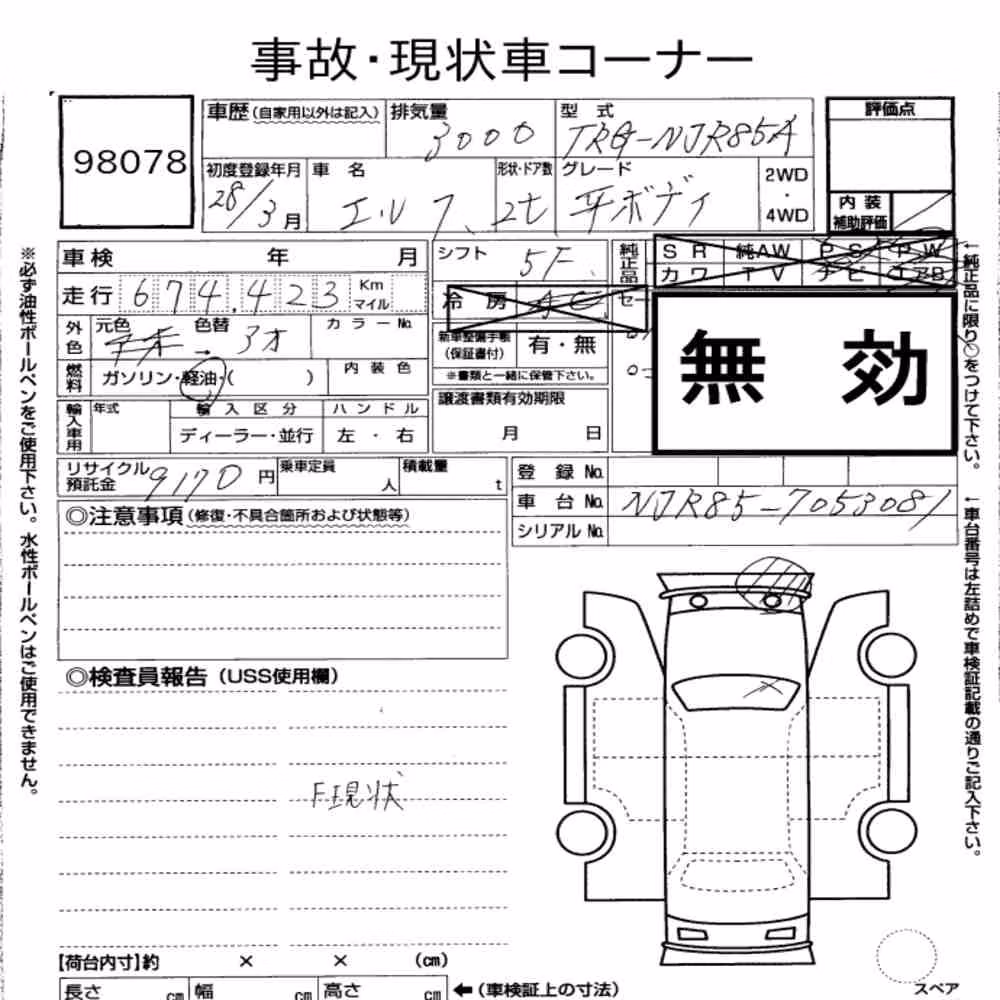 事故・現状車コーナー
98078
車歴(自家用以外は記入)
排気量
3000
型式
TRG-NJR85A
評価点
初度登録年月
28/3月
車名
エルフ、2t
形状・ドア数
グレード
平ボディ
2WD
・
4WD
内装
補助評価
車検 年 月
シフト
5F
純正品
SR 純AW PS PW
カワ TV ナビ エアB
走行 674,423 Km マイル
冷房 AC
セー
外色
元色 色替
→ 3オ
カラーNo.
新車整備手帳
(保証書付)
有・無
※書類と一緒に保管下さい。
無効
燃料
ガソリン・軽油・( )
内装色
譲渡書類有効期限
月 日
輸入車用
年式
輸入区分
ディーラー・並行
ハンドル
左・右
リサイクル
預託金
9170円
乗車定員
人
積載量
t
登録No.
車台No. NJR85-7053081
シリアルNo.
◎注意事項(修復・不具合箇所および状態等)
◎検査員報告(USS使用欄)
F現状
【荷台内寸】約 × × (cm)
長さ cm 幅 cm 高さ cm ←(車検証上の寸法)
スペア
※必ず油性ボールペンをご使用下さい。水性ボールペンはご使用できません。
←純正品に限り○をつけて下さい。
←車台番号は左詰めで車検証記載の通りご記入下さい。